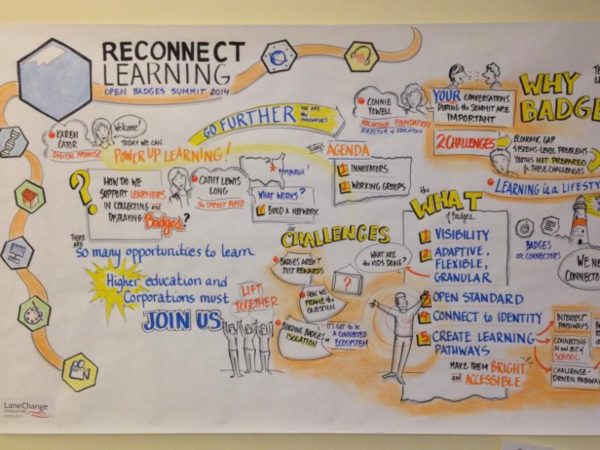 RECONNECT
LEARNING
OPEN BADGES SUMMIT 2014
KAREN
CATOR
DIGITAL PROMISE
Welcome!
TODAY WE CAN
POWER UP LEARNING!
GO FURTHER
YOU ARE
THE INNOVATORS
CONNIE
YOWELL
MACARTHUR FOUNDATION
DIRECTOR of EDUCATION
YOUR CONVERSATIONS
DURING the SUMMIT ARE
IMPORTANT
2 CHALLENGES
ECONOMIC GAP
SYSTEMS-LEVEL PROBLEMS
YOUTHS NOT PREPARED
for THESE CHALLENGES
WHY
BADG
LEARNING is a LIFESTY
?
HOW DO WE
SUPPORT LEARNERS
IN COLLECTING and
DISPLAYING Badges?
CATHY LEWIS
LONG
the SPROUT FUND
PITTSBURGH!
WHAT WORKS?
1 BUILD A NETWORK
Today's
AGENDA
1 INNOVATORS
2 WORKING GROUPS
THERE
ARE
SO many opportunities to learn
Higher education and
Corporations must
JOIN US
LIFT
TOGETHER
the
CHALLENGES
BADGES AREN'T
JUST REWARDS
HOW WE
FRAME the
QUESTION
BUILDING BADGES in
ISOLATION
IT'S GOT to BE
A CONNECTED
ECOSYSTEM
WHAT ARE
the KIDS DOING?
?
the
WHAT
of Badges
1 VISIBILITY
2 ADAPTIVE,
FLEXIBLE,
GRANULAR
OPEN STANDARD
4 CONNECT to IDENTITY
5 CREATE LEARNING
PATHWAYS
MAKE THEM BRIGHT
and ACCESSIBLE
BADGES
as CONNECTORS
WE NE
CONNECTO
INTEREST
PATHWAYS
CONNECTING
IN and OUT of
SCHOOL
CHALLENGE-
DRIVEN PATHWA
LaneChange